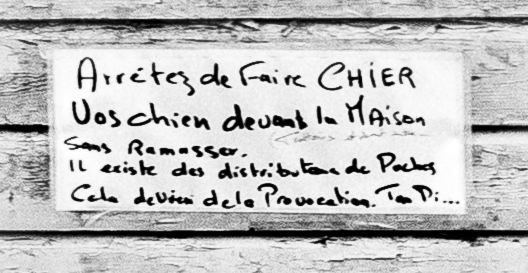 Arrêtez de Faire CHIER
Vos chien devant la MAison
Sans Ramasser.
Il existe des distributeur de Poches
Cela devien de la Provocation. Tan Pi...